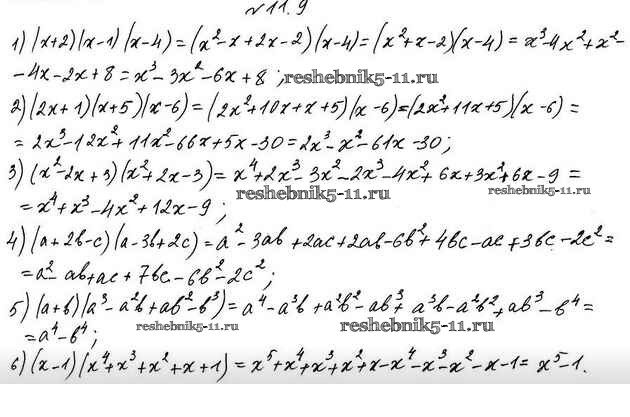 №11.9
1) (x+2)(x-1)(x-4)=(x²-x+2x-2)(x-4)=(x²+x-2)(x-4)=x³-4x²+x²-
-4x-2x+8=x³-3x²-6x+8; reshebnik5-11.ru
2) (2x+1)(x+5)(x-6)=(2x²+10x+x+5)(x-6)=(2x²+11x+5)(x-6)=
=2x³-12x²+11x²-66x+5x-30=2x³-x²-61x-30;
3) (x²-2x+3)(x²+2x-3)=x⁴+2x³-3x²-2x³-4x²+6x+3x²+6x-9=
reshebnik5-11.ru reshebnik5-11.ru
=x⁴+x³-4x²+12x-9;
4) (a+2b-c)(a-3b+2c)=a²-3ab+2ac+2ab-6b²+4bc-ac+3bc-2c²=
=a²-ab+ac+7bc-6b²-2c²;
5) (a+b)(a³-a²b+ab²-b³)=a⁴-a³b+a²b²-ab³+a³b-a²b²+ab³-b⁴=
=a⁴-b⁴; reshebnik5-11.ru reshebnik5-11.ru
6) (x-1)(x⁴+x³+x²+x+1)=x⁵+x⁴+x³+x²+x-x⁴-x³-x²-x-1=x⁵-1.